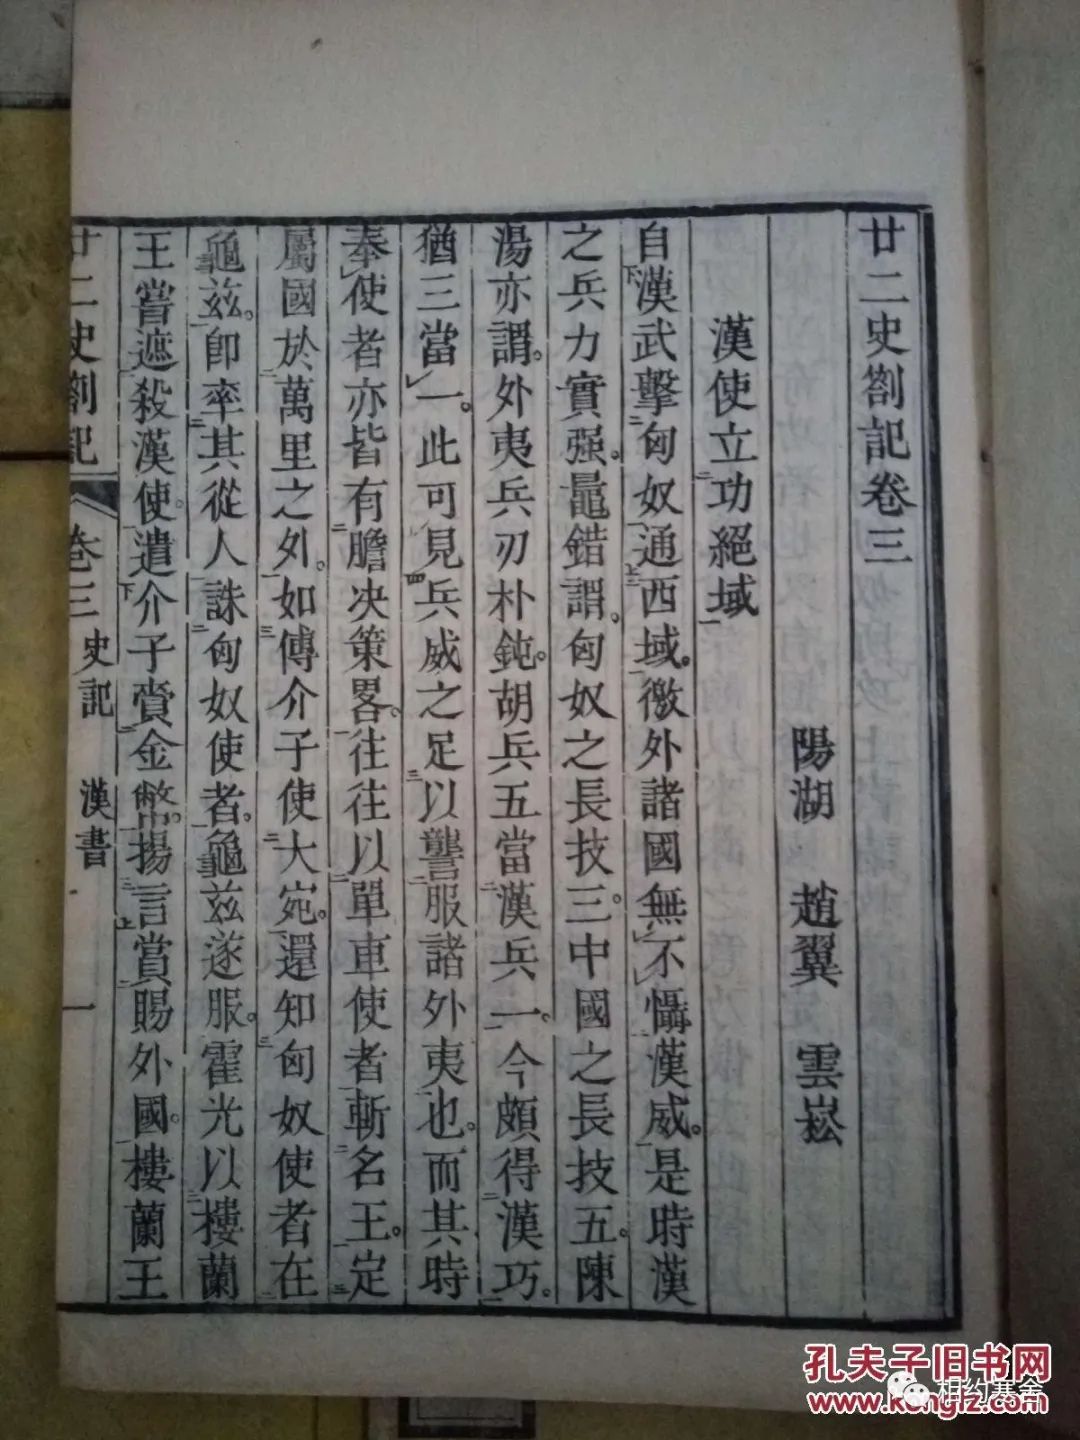 廿二史劄記卷三
陽湖 趙翼 雲崧
漢使立功絕域
自漢武擊匈奴通西域。徼外諸國無不懾漢威。是時漢
之兵力實强。鼂錯謂。匈奴之長技三。中國之長技五。陳
湯亦謂。外夷兵刃朴鈍。胡兵五當漢兵一。今頗得漢巧。
猶三當一。此可見兵威之足以讋服諸外夷也。而其時
奉使者亦皆有膽决策畧。往往以單車使者斬名王。定
屬國於萬里之外。如傅介子使大宛。還知匈奴使者在
龜兹。卽率其從人誅匈奴使者。龜兹遂服。霍光以樓蘭
王嘗遮殺漢使。遣介子賫金幣。揚言賞賜外國。樓蘭王
廿二史劄記 卷三 史記 漢書 一
孔夫子旧书网
www.kongfz.com
相约慕舍